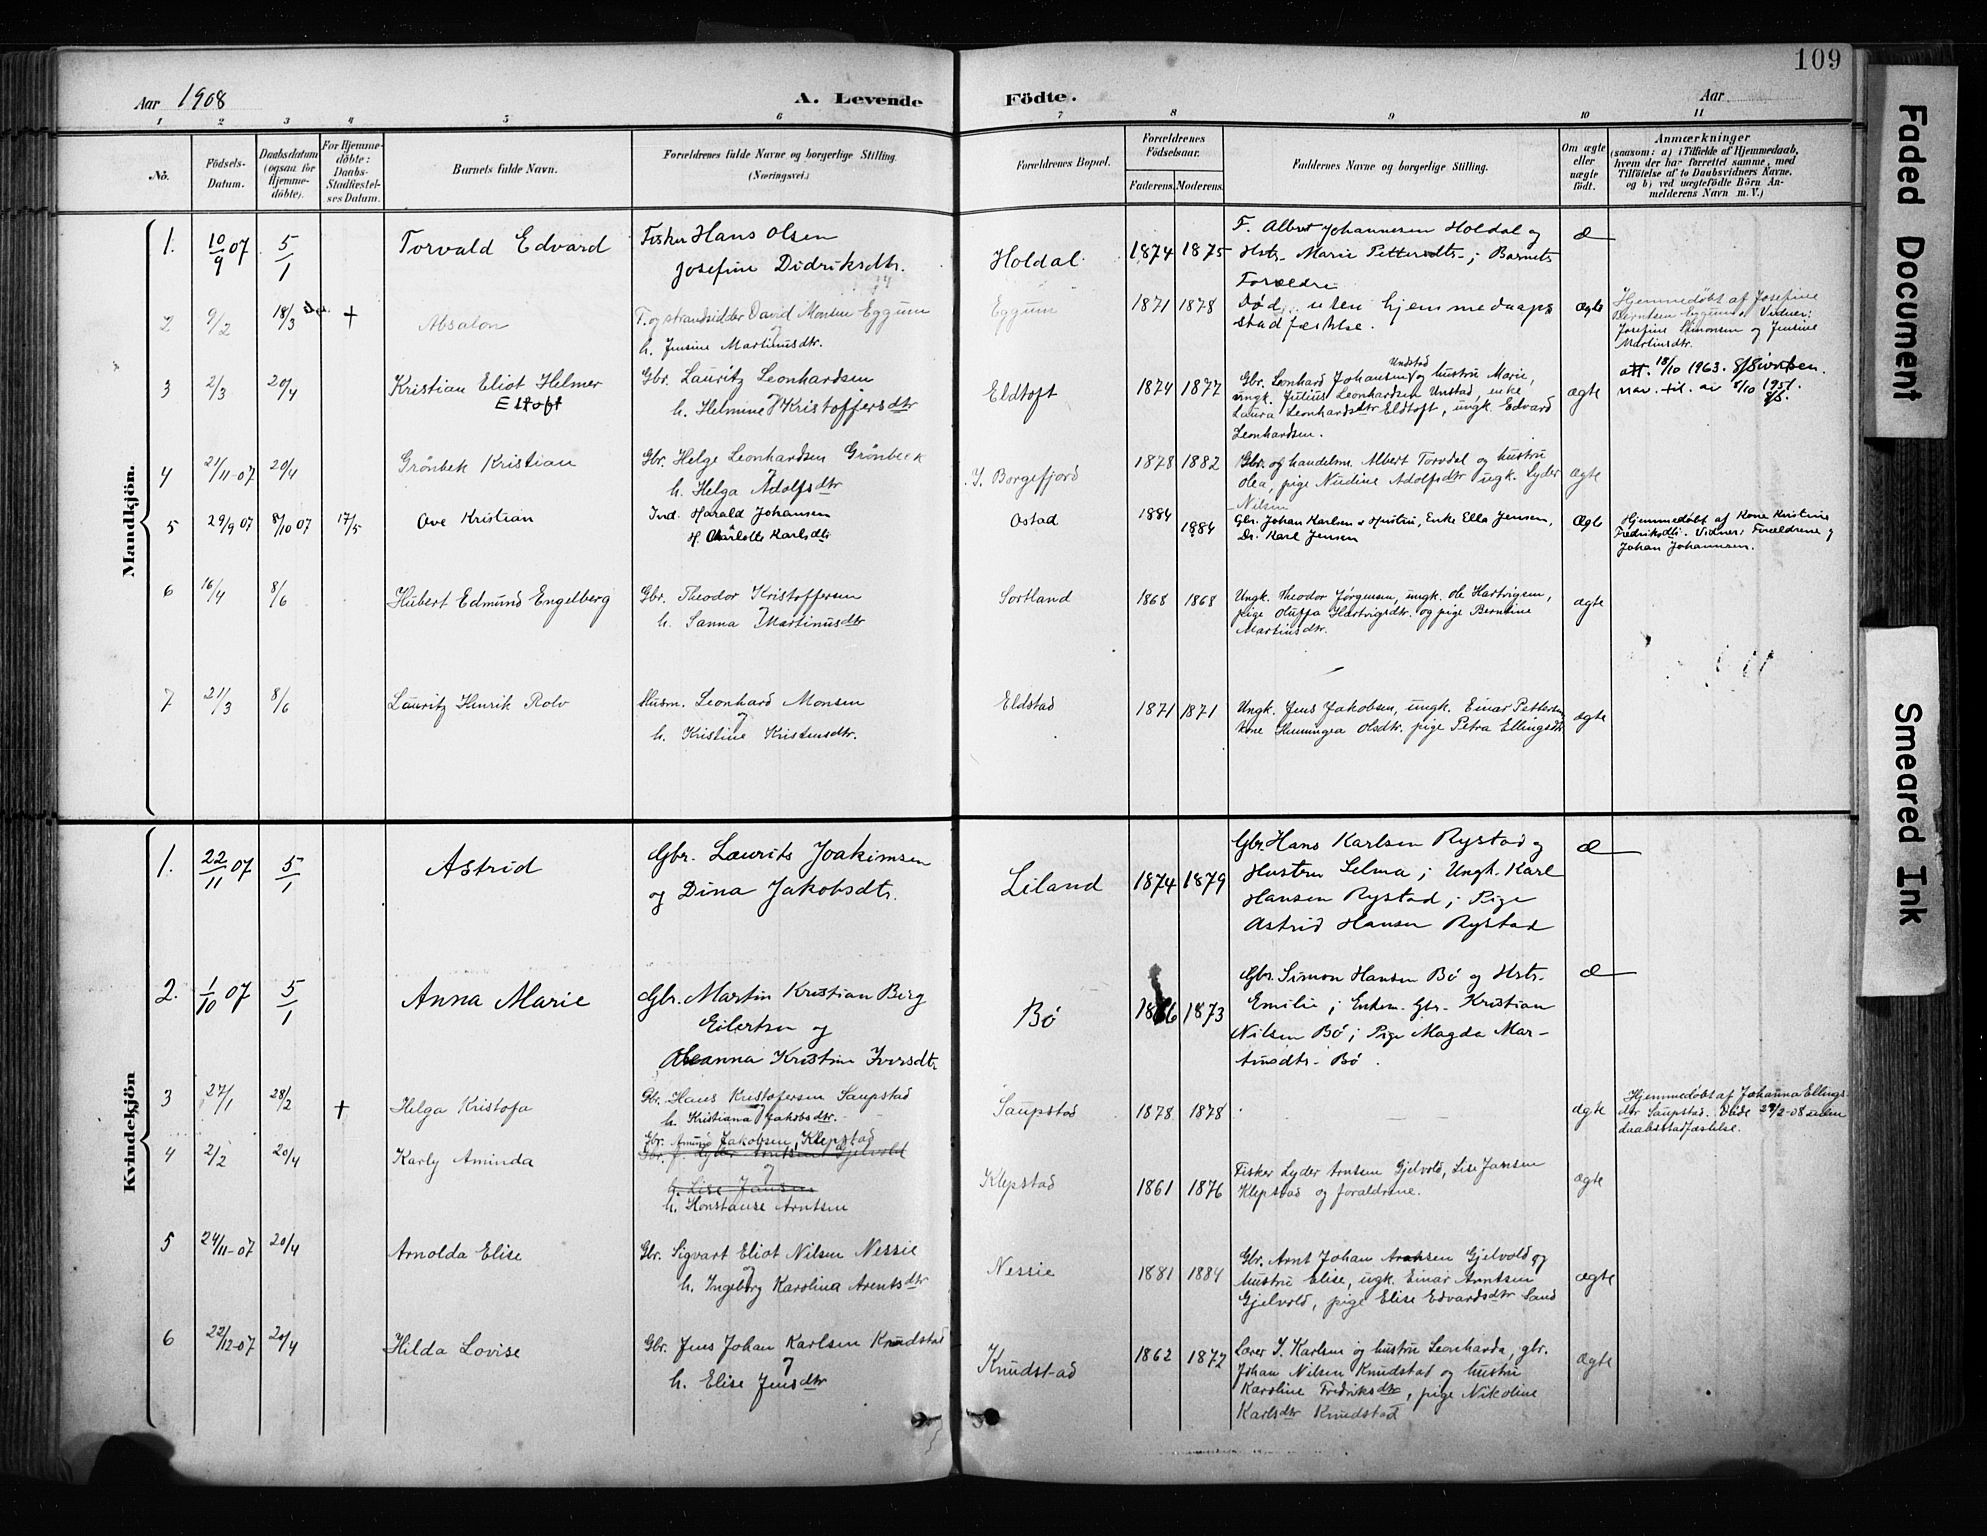 109
Aar 1908
A. Levende Födte.
Aar
1 2 3 4 5 6 7 8 9 10 11
No.
Födsels-Datum.
Daabsdatum (ogsaa for Hjemme-döbte).
For Hjemme-döbte: Daabs-Stadfæstel-ses Datum.
Barnets fulde Navn.
Forældrenes fulde Navne og borgerlige Stilling. (Næringsvei.)
Forældrenes Bopæl.
Forældrenes Födselsaar.
Faderens. Moderens.
Faddernes Navne og borgerlige Stilling.
Om ægte eller uægte födt.
Anmærkninger
(saasom: a) i Tilfælde af Hjemmedaab, hvem der har forrettet samme, med Tilföielse af to Daabsvidners Navne, og b) ved uægtefödte Börn An-melderens Navn m. V.)
Mandkjön.
1. 10/9 07 5/1 Torvald Edvard
Fisker Hans Olsen
Josefine Didriksdtr.
Holdal 1874 1875
F. Albert Johannesen Holdal og
Hstr. Marie Pettersdtr.; Barnets
Forældre
æ
2 9/2 18/3 + Absalon
F. og strandsidder David Monsen Eggum
og
h. Jensine Martinusdtr.
Eggum 1871 1878
Død uten hjemmedaaps
stadfæstelse.
ægte
Hjemmedøbt af Josefine
Berntsen Eggum. Vidner:
Josefine Simonsen og Jensine
Martinsdtr.
3 2/3 20/4 Kristian Eliot Helmer
Eltoft
Gbr. Lauritz Leonhardsen
og
h. Helmine Kristoffersdtr
Eldtoft 1874 1877
Undstad
Gbr. Leonhard Johansen og hustru Marie,
ungk. Julius Leonhardsen Unstad, enke
Laura Leonhardsdtr Eldtoft, ungk. Edvard
Leonhardsen.
ægte
att. 18/10 1963. S/Sivertsen.
nav. til. av 8/10 1951.
4 21/11-07 20/4 Grönbek Kristian
Gbr. Helge Leonhardsen Grönbeck
og
h. Helga Adolfsdtr
I. Borgefjord 1878 1882
Gbr. og handelsm. Albert Torvdal og hustru
Olea, pige Nudine Adolfsdtr ungk. Lyder
Nilsen
ægte
5 29/9 07 8/10 07 17/5 Ove Kristian
Ind. Harald Johansen
H. Charlotte Karlsdtr
Ostad 1884 1884
Gbr. Johan Karlsen o Hustru, Enke Ella Jensen,
Dr. Karl Jensen
Ægte
Hjemmedøbt af Kone Kristine
Fredriksdtr. Vidner: Forældrene og
Johan Johannesen.
6 16/4 8/6 Hubert Edmund Engelberg
Gbr. Theodor Kristoffersen
og
h. Sanna Martinusdtr
Sortland 1868 1868
Ungk. Theodor Jørgensen, ungk. Ole Hartvigsen,
pige Oluffa Hartvigsdtr. og pige Berntine
Martinsdtr.
ægte
7 21/3 8/6 Lauritz Henrik Rolv
Husm. Leonhard Monsen
og
h. Kristine Kristensdtr.
Eldstad 1871 1871
Ungk. Jens Jakobsen, ungk. Einar Pettersen
kone Henningea Olsdtr. pige Petra Ellingsdtr
ægte
Kvindekjön
1. 22/11 07 5/1 Astrid
Gbr. Laurits Joakimsen
og Dina Jakobsdtr.
Liland 1874 1879
Gbr. Hans Karlsen Rystad og
Hustru Selma; Ungk. Karl
Hansen Rystad; Pige
Astrid Hansen Rystad
æ
2. 1/10 07 5/1 Anna Marie
Gbr. Martin Kristian Berg
Eilertsen og
Oleanna Kristine Iversdtr
Bö 1866 1873
Gbr. Simon Hansen Bö og Hstr.
Emilie; Enkem. Gbr. Kristian
Nilsen Bö; Pige Magda Mar-
tinsdtr. Bö.
æ
3 27/1 28/2 + Helga Kristofa
Gbr. Hans Kristofersen Saupstad
og
h. Kristiana Jakobsdtr.
Saupstad 1878 1878
ægte
Hjemmedøbt af Johanna Ellings-
dtr Saupstad. Døde 29/2-08 uden
daabsstadfæstelse.
4 2/2 20/4 Karly Aminda
Gbr. Amund Jakobsen, Klepstad
Gbr. f. Lyder Arntsen Gjelvold
og
h. Lise Jansen
h. Konstanse Arntsen
Klepstad 1861 1876
Fisker Lyder Arntsen Gjelvold, Lise Jansen
Klepstad og forældrene.
ægte
5 24/11-07 20/4 Arnolda Elise
Gbr. Sigvart Eliot Nilsen Nessie
og
h. Ingeborg Karolina Arentsdtr
Nessie 1881 1884
Gbr. Arnt Johan Arntsen Gjelvold og
hustru Elise, ugk. Einar Arntsen
Gjelvold, pige Elise Edvardsdtr Sand
ægte
6 22/12-07 20/4 Hilda Lovise
Gbr. Jens Johan Karlsen Knudstad
og
h. Elise Jensdtr
Knudstad 1862 1872
Lærer I. Karlsen og hustru Leonharda, gbr.
Johan Nilsen Knudstad og hustru
Karoline Fredriksdtr, pige Nikoline
Karlsdtr Knudstad
ægte
Faded Document
Smeared Ink